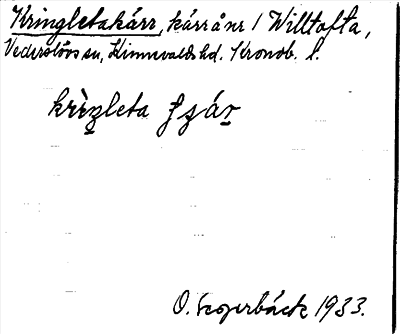 Kringletakärr, kärr å nr 1 Willtofta,
Vederslövs sn, Kinnevalds hd. Kronob. l.
krìŋleta ʃɟár
O. Segerbäck 1933.